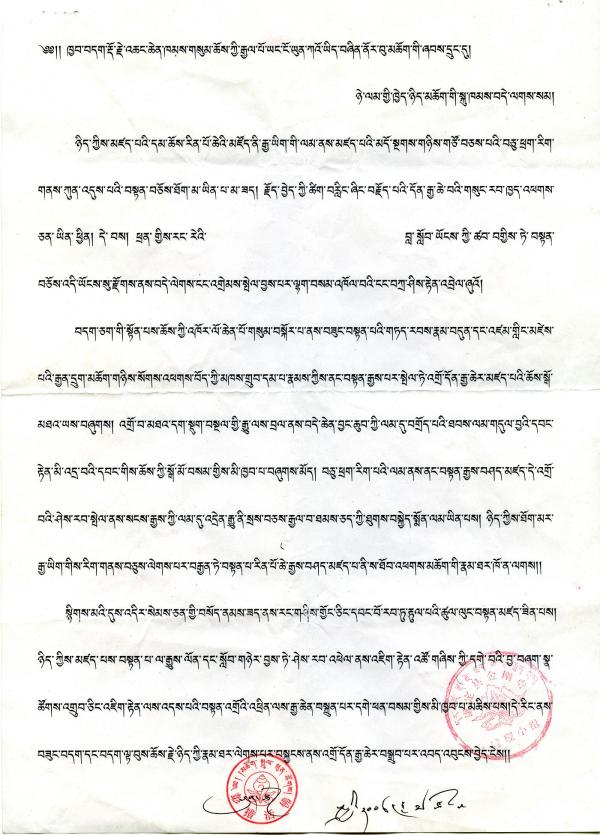 ༄༅།། ཁྱབ་བདག་རྡོ་རྗེ་འཆང་ཆེན་ཁམས་གསུམ་ཆོས་ཀྱི་རྒྱལ་པོ་ཡང་ངོ་ཡུན་ཀའོ་ཡིད་བཞིན་ནོར་བུ་མཆོག་གི་ཞབས་དྲུང་དུ།
ཉེ་ལམ་གྱི་ཁྱེད་ཉིད་མཆོག་གི་སྐུ་ཁམས་བདེ་ལགས་སམ།
ཉིད་ཀྱིས་མཛད་པའི་དམ་ཆོས་རིན་པོ་ཆེའི་མཛོད་ནི་རྒྱ་ཡིག་གི་ལམ་ནས་མཛད་པའི་མདོ་སྔགས་གཉིས་གཙོ་བཅས་པའི་བཅུ་ཕྲག་རིག་
གནས་ཀུན་འདུས་པའི་བསྟན་བཅོས་ཐོག་མ་ཡིན་པ་མ་ཟད། རྗོད་བྱེད་ཀྱི་ཚིག་བརླིང་ཞིང་བརྗོད་པའི་དོན་རྒྱ་ཆེ་བའི་གསུང་རབ་ཁྱད་འཕགས་
ཅན་ཡིན་ཕྱིན། དེ་བས། ཕྲན་གྱིས་རང་རེའི་ བླ་སློབ་ཡོངས་ཀྱི་ཚབ་བགྱིས་ཏེ་བསྟན་
བཅོས་འདི་ཡོངས་སུ་རྫོགས་ནས་བདེ་ལེགས་ངང་འགྲེམས་སྤེལ་བྱས་པར་ལྷག་བསམ་འཁོལ་བའི་ངང་བཀྲ་ཤིས་རྟེན་འབྲེལ་ཞུའོ།
བདག་ཅག་གི་སྟོན་པས་ཆོས་ཀྱི་འཁོར་ལོ་ཆེན་པོ་གསུམ་བསྐོར་པ་ནས་བཟུང་བསྟན་པའི་གཏད་རབས་རྣམ་བདུན་དང་འཛམ་གླིང་མཛེས་
པའི་རྒྱན་དྲུག་མཆོག་གཉིས་སོགས་འཕགས་བོད་ཀྱི་མཁས་གྲུབ་དམ་པ་རྣམས་ཀྱིས་ནང་བསྟན་རྒྱས་པར་སྤེལ་ཏེ་འགྲོ་དོན་རྒྱ་ཆེར་མཛད་པའི་ཆོས་སྒོ་
མཐའ་ཡས་བཞུགས། འགྲོ་བ་མཐའ་དག་སྡུག་བསྔལ་གྱི་རྒྱུ་ལས་བྲལ་ནས་བདེ་ཆེན་བྱང་ཆུབ་ཀྱི་ལམ་དུ་བགྲོད་པའི་ཐབས་ལམ་གདུལ་བྱའི་དབང་
རྟེན་མི་འདྲ་བའི་དབང་གིས་ཆོས་ཀྱི་སྒོ་མོ་བསམ་གྱིས་མི་ཁྱབ་པ་བཞུགས་མོད། བཅུ་ཕྲག་རིག་པའི་ལམ་ནས་ནང་བསྟན་རྒྱས་བཤད་མཛད་དེ་འགྲོ་
བའི་ཤེས་རབ་སྤེལ་ནས་སངས་རྒྱས་ཀྱི་ལམ་དུ་འདྲེན་རྒྱུ་ནི་སྲས་བཅས་རྒྱལ་བ་ཐམས་ཅད་ཀྱི་ཐུགས་བསྐྱེད་སྨོན་ལམ་ཡིན་པས། ཉིད་ཀྱིས་ཐོག་མར་
རྒྱ་ཡིག་གིས་རིག་གནས་བཅུས་ལེགས་པར་བརྒྱན་ཏེ་བསྟན་པ་རིན་པོ་ཆེ་རྒྱས་བཤད་མཛད་པ་ནི་ས་ཐོབ་འཕགས་མཆོག་གི་རྣམ་ཐར་ཁོ་ན་ལགས།།
སྙིགས་མའི་དུས་འདིར་སེམས་ཅན་གྱི་བསོད་ནམས་ཟད་ནས་རང་གཤིས་གྱོང་ཅིང་དབང་པོ་རབ་ཏུ་རྟུལ་པའི་ཚུལ་ལུང་བསྟན་མཛད་ཟིན་པས།
ཉིད་ཀྱིས་མཛད་པས་བསྟན་པ་ལ་རྒྱུས་ལོན་དང་སློབ་གཉེར་བྱས་ཏེ་ཤེས་རབ་འཕེལ་ནས་འཇིག་རྟེན་འཚོ་གཞིས་ཀྱི་དགེ་བའི་བྱ་བཞག་སྣ་
ཚོགས་འགྲུབ་ཅིང་འཇིག་རྟེན་ལས་འདས་པའི་བསྟན་འགྲོའི་འཕྲིན་ལས་རྒྱ་ཆེན་བསྒྲུན་པར་དགེ་ཕན་བསམ་གྱིས་མི་ཁྱབ་པ་མཆིས་པས། དེ་རིང་ནས་
བཟུང་བདག་དང་བདག་ལྟ་བུས་ཆོས་རྗེ་ཉིད་ཀྱི་རྣམ་ཐར་ལེགས་པར་བསྐྱངས་ནས་འགྲོ་དོན་རྒྱ་ཆེར་བསྒྲུབ་པར་འབད་འབུངས་བྱེད་ངེས།།